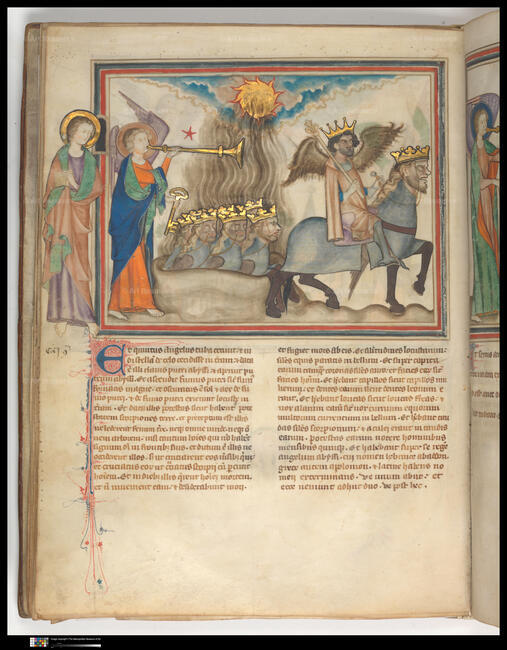 Et quintus angelus tuba cecinit: et vi
di stella de celo cecidisse in terra: et data
est illa clavis putei abyssi: et aperuit pu
teum abyssi. Et ascendit fumus putei sic fum
fornacis magne: et obscuratus est sol et aer de fu
mo putei: et de fumo putei exierunt locuste in
terram. Et data est illis potestas sicut habent potes
tatem scorpiones terre: et preceptum est illis
ne lederent fenum terre neque omne viride neque om
nem arborem: nisi tantum homines qui non habent
signum dei in frontibus suis. et dictum est illis ne
occiderent illos: sed ut cruciarent mensibus quinque:
et cruciatus eorum ut cruciatus scorpii cum percutit
hominem. Et in diebus illis querent homines mortem.
et non invenient eam: et desiderabunt mori.
et fugiet mors ab eis. Et similitudines locustarum:
similes equis paratis in bellum. Et super capita
earum tanquam corone similes auro. et facies earum sicut
facies hominum. Et habebant capillos sicut capillos mu
lierum: et dentes earum sicut dentes leonum e
rant. Et habebant loricas sicut loricas ferreas. et
vox alarum earum sicut vox curruum equorum
multorum currentium in bellum. Et habebant cau
das similes scorpionum: et aculei erant in caudis
earum. potestas earum nocere hominibus
mensibus quinque. Et habebant super se regem
angelum abyssi. cui nomen hebraice abaddon.
grece autem apolion. et latine habens no
men exterminans. ve unum abiit. et
ecce veniunt adhuc duo ve post hec.